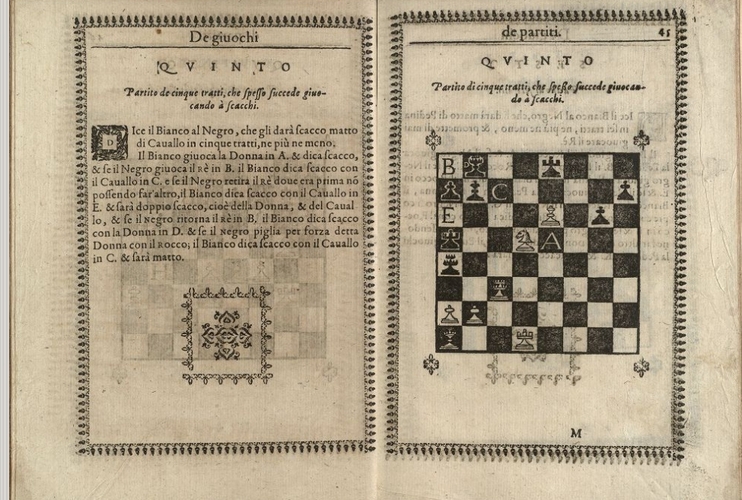 De giuochi
QVINTO
Partito de cinque tratti, che spesso succede giuo-
cando à scacchi.
DIce il Bianco al Negro, che gli darà scacco matto
di Cauallo in cinque tratti, ne più ne meno.
Il Bianco giuoca la Donna in A. & dica scacco,
& se il Negro giuoca il Rè in B. il Bianco dica scacco con
il Cauallo in C. e se il Negro retira il Rè doue era prima nō
possendo far'altro, il Bianco dica scacco con il Cauallo in
E. & sarà doppio scacco, cioè della Donna, & del Caual
lo, & se il Negro ritorna il Rè in B, il Bianco dica scacco
con la Donna in D. & se il Negro piglia per forza detta
Donna con il Rocco; il Bianco dica scacco con il Cauallo
in C. & sarà matto.
de partiti. 45
QVINTO
Partito di cinque tratti, che spesso succede giuocan-
do à scacchi.
B
C
E
A
M